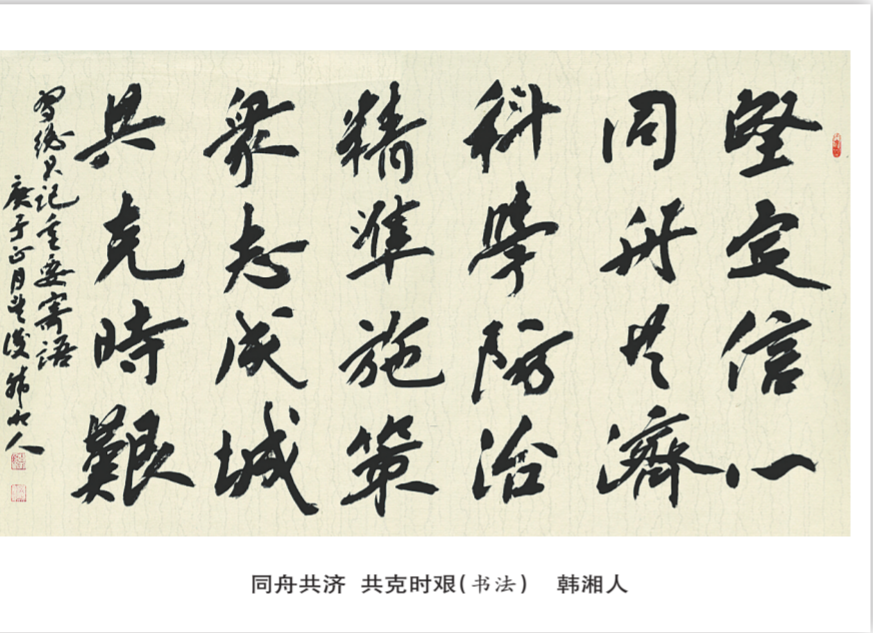 堅定信心
同舟共濟
科學防治
精準施策
衆志成城
共克時艱
習總书記重要寄語
庚子正月望後韩湘人
同舟共济 共克时艰(书法) 韩湘人